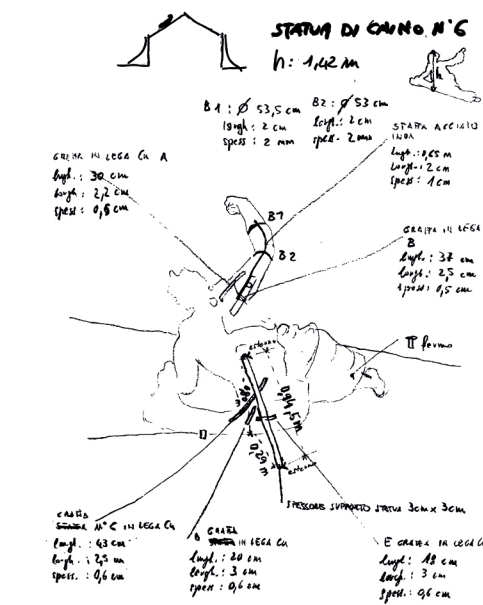 STATUA DI CAINO N°6
h: 1,42 m
h
B1 : Ø 53,5 cm
largh : 2 cm
spess : 2 mm
B2 : Ø 53 cm
largh. : 2 cm
spess : 2 mm
STAFFA ACCIAIO
INOX
lugh. : 0,65 m
Largh. : 2 cm
spess : 1 cm
GRAFFA IN LEGA Cu A
lugh. : 30 cm
largh : 2,2 cm
spess : 0,5 cm
B1
B2
GRAFFA IN LEGA
B
lugh. : 37 cm
largh. : 2,5 cm
spess : 0,5 cm
II perno
esterno
0,94,5 m
0,29 m
esterno
SPESSORE SUPPORTO STATUA 3cm x 3cm
GRAFFA
N°6 IN LEGA Cu
lungh. : 43 cm
largh : 2,5 cm
spess. : 0,6 cm
D GRAFFA
IN LEGA Cu
lugh. : 20 cm
largh : 3 cm
spess : 0,6 cm
E GRAFFA IN LEGA
lugh : 18 cm
largh : 3 cm
spess. : 0,6 cm